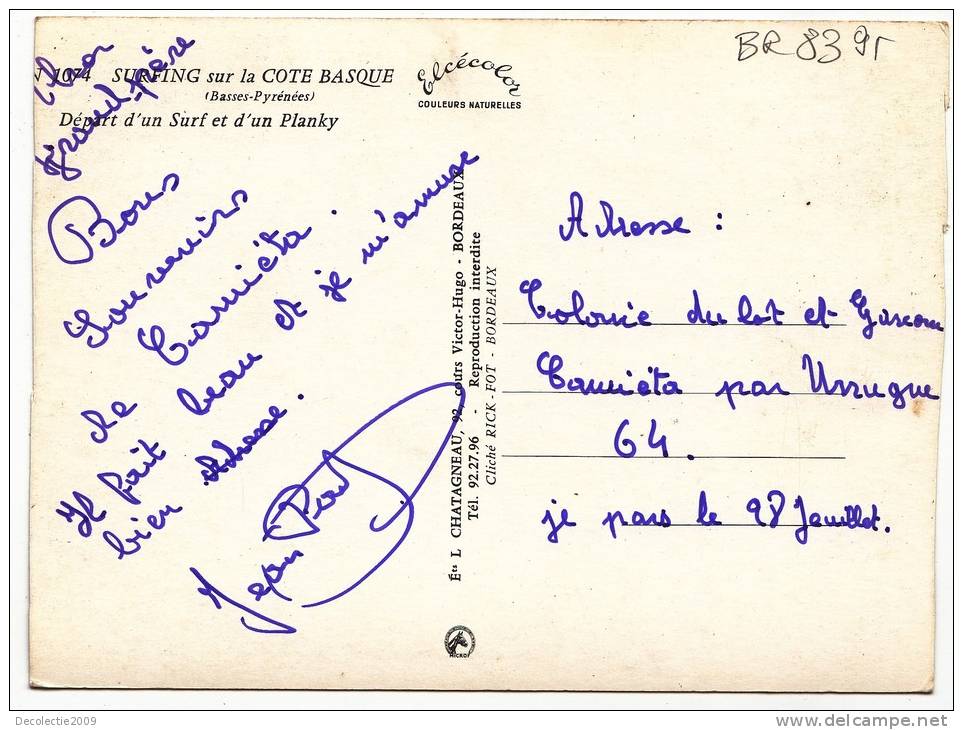 BR 8395
N 1074 SURFING sur la COTE BASQUE
(Basses-Pyrénées)
Départ d'un Surf et d'un Planky
Elcécolor
COULEURS NATURELLES
Cher
grand-père
Bons
Souvenirs
de Camiéta.
Il fait beau et je m'amuse
bien
Jean
Éts L CHATAGNEAU, 92, cours Victor-Hugo - BORDEAUX
Tél. 92.27.96 - Reproduction interdite
Cliché RICK-FOT - BORDEAUX
MICRO
Adresse :
Colonie du lot et Gascon
Camiéta par Urrugne
64.
je pars le 28 Jeuillet.
Decolectie2009
www.delcampe.net